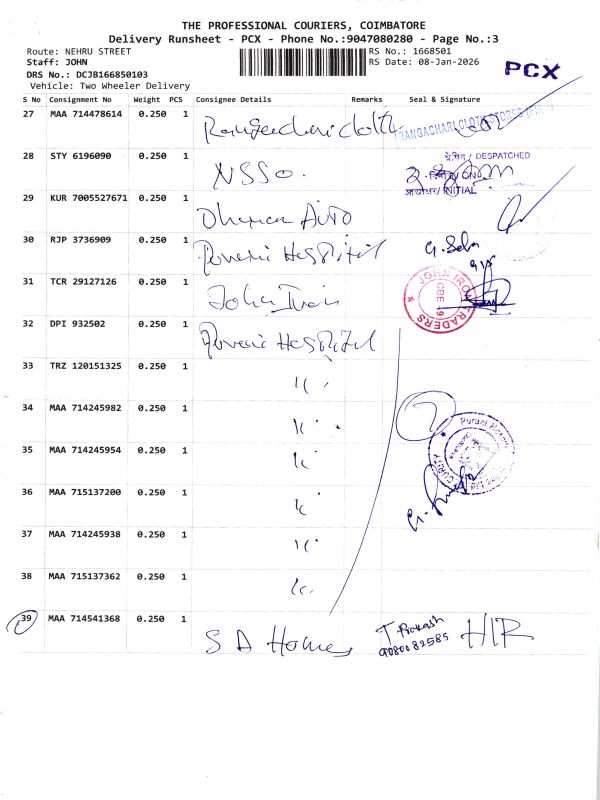 THE PROFESSIONAL COURIERS, COIMBATORE
Delivery Runsheet - PCX - Phone No.:9047080280 - Page No.:3
Route: NEHRU STREET
RS No.: 1668501
Staff: JOHN
RS Date: 08-Jan-2026
DRS No.: DCJB166850103
Vehicle: Two Wheeler Delivery
PCX
S No Consignment No Weight PCS Consignee Details Remarks Seal & Signature
27 MAA 714478614 0.250 1 Rangachari cloth RANGACHARI CLOTH STORES
28 STY 6196090 0.250 1 NSSO.
प्रेषित / DESPATCHED
/ ON
/ INITIAL
29 KUR 7005527671 0.250 1 Auto
30 RJP 3736909 0.250 1 Hospital
31 TCR 29127126 0.250 1 John Iron JOHN IRON TRADERS CBE
32 DPI 932502 0.250 1 Hospital
33 TRZ 120151325 0.250 1
34 MAA 714245982 0.250 1 7
35 MAA 714245954 0.250 1
36 MAA 715137200 0.250 1
37 MAA 714245938 0.250 1
38 MAA 715137362 0.250 1
39 MAA 714541368 0.250 1 S A Homes T Prakash
9080082585